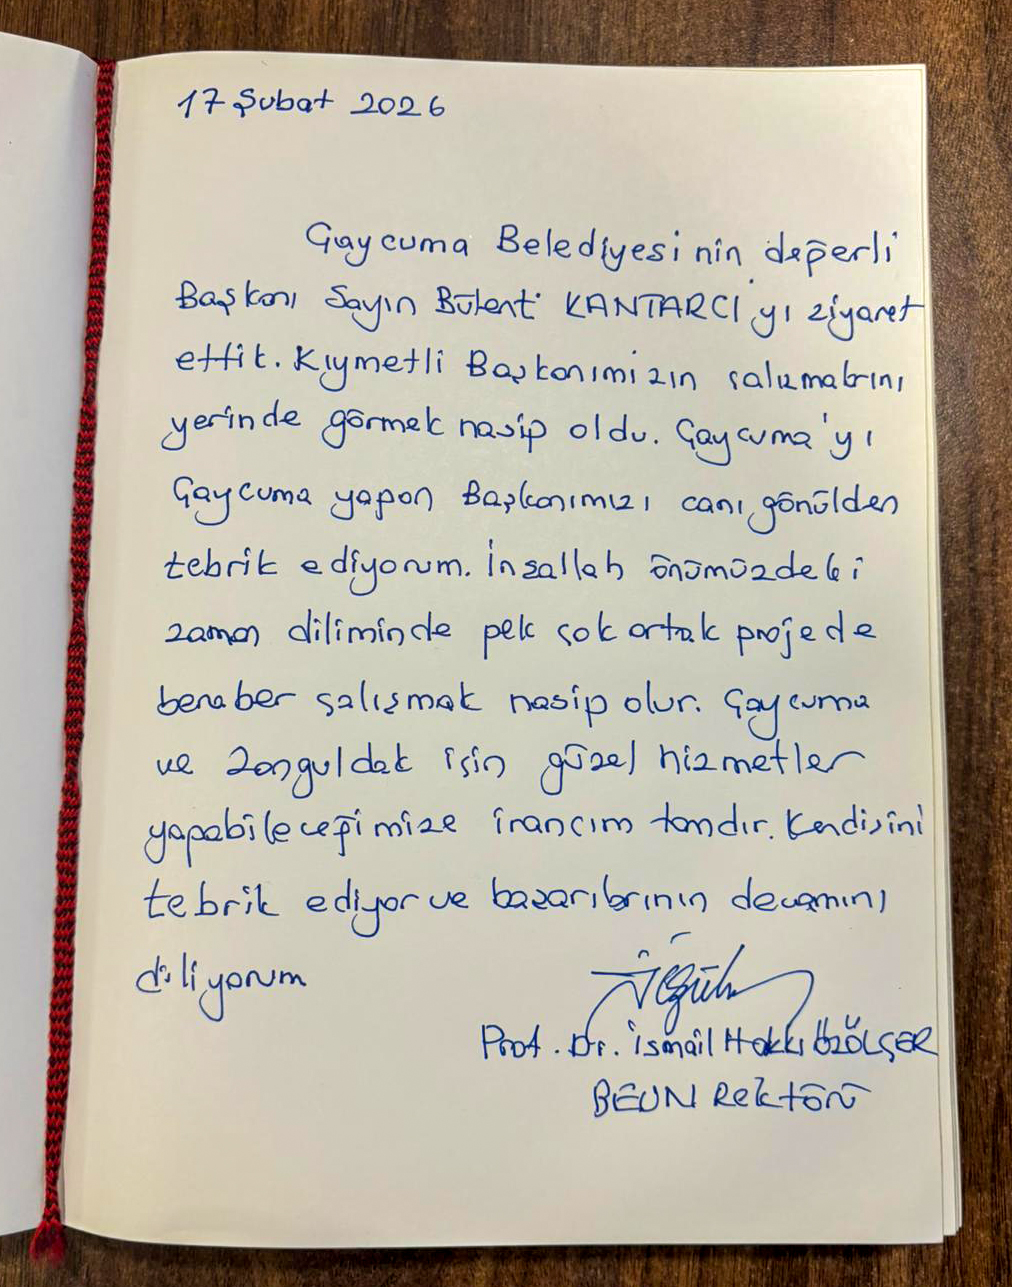 17 Şubat 2026
Çaycuma Belediyesinin değerli
Başkanı Sayın Bülent KANTARCI'yı ziyaret
ettik. Kıymetli Başkanımızın çalışmalarını
yerinde görmek nasip oldu. Çaycuma'yı
Çaycuma yapan Başkanımızı canı gönülden
tebrik ediyorum. İnşallah önümüzdeki
zaman diliminde pek çok ortak projede
beraber çalışmak nasip olur. Çaycuma
ve Zonguldak için güzel hizmetler
yapabileceğimize inancım tamdır. Kendisini
tebrik ediyor ve başarılarının devamını
diliyorum
Prof. Dr. İsmail Hakkı ÖZÖLÇER
BEUN Rektörü